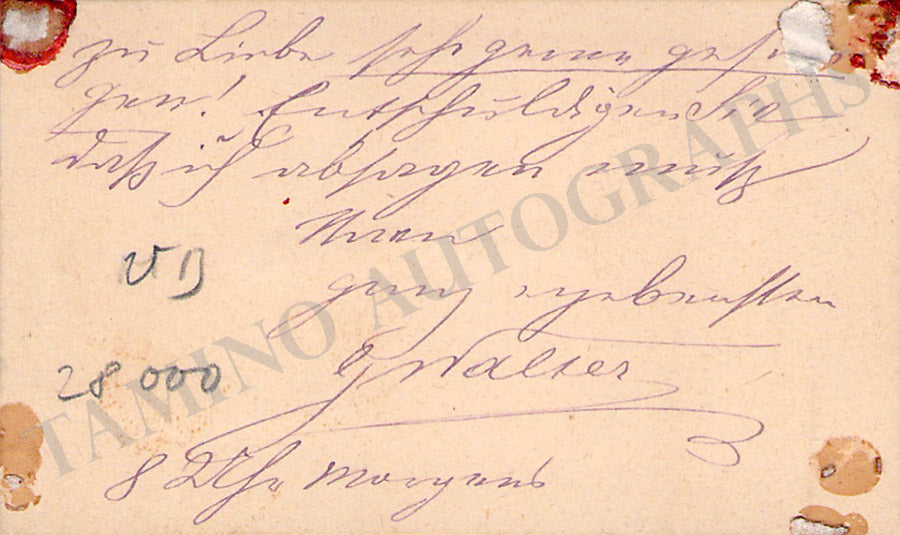 zu Liebe sehr gerne gesun
gen! Entschuldigen Sie
daß ich absagen muß
Ihren
ganz ergebensten
GWalter
VB
28 000
8 Uhr Morgens
TAMINO AUTOGRAPHS